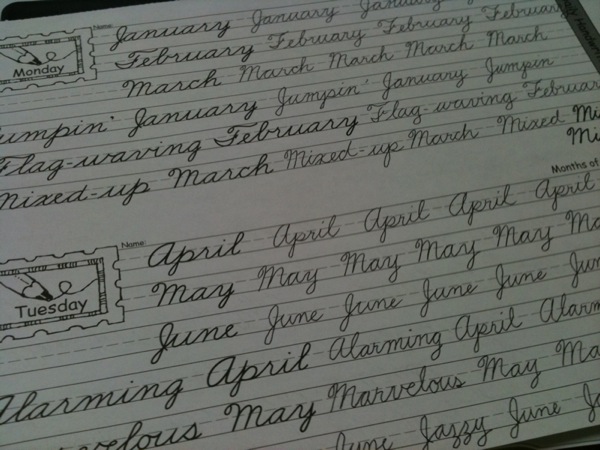 Name: January January January
Monday
February February February February
March March March March March
January Jumpin' January Jumpin
Flag-waving February Flag-waving
Mixed-up March Mixed-up March Mixed
Months of
Name: April April April April April
Tuesday
May May May May May
June June June June June
Alarming April Alarming April
May Marvelous May
June Jazzy June